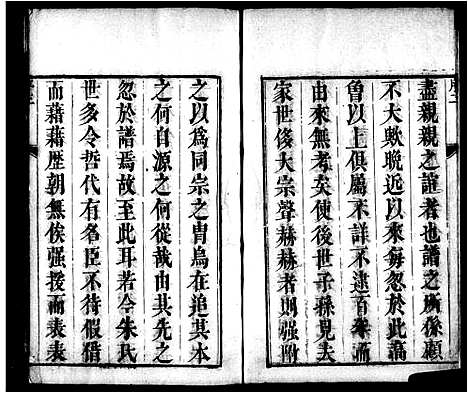 盡親親之誼者也譜之所係顧
不大歟晚近以來每忽於此高
曾以上俱屬不詳不逮百年而
由來無考矣使後世子孫見夫
家世侈大宗聲赫赫者則强附
之以爲同宗之冑烏在追其本
之何自源之何從哉由其先之
忽於譜焉故至此耳若今朱氏
世多令哲代有名臣不待假借
而藉藉歷朝無俟强援而表表